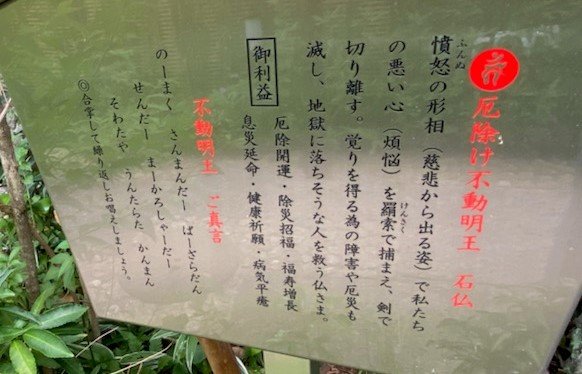 厄除け不動明王 石仏
憤怒の形相(慈悲から出る姿)で私たち
の悪い心(煩悩)を羂索で捕まえ、剣で
切り離す。覚りを得る為の障害や厄災も
滅し、地獄に落ちそうな人を救う仏さま。
御利益
厄除開運・除災招福・福寿増長
息災延命・健康祈願・病気平癒
不動明王 ご真言
のーまく さんまんだー ばーざらだん
せんだー まーかろしゃーだー
そわたや うんたらた かんまん
◎合掌して繰り返しお唱えしましょう。
ふんぬ
けんさく